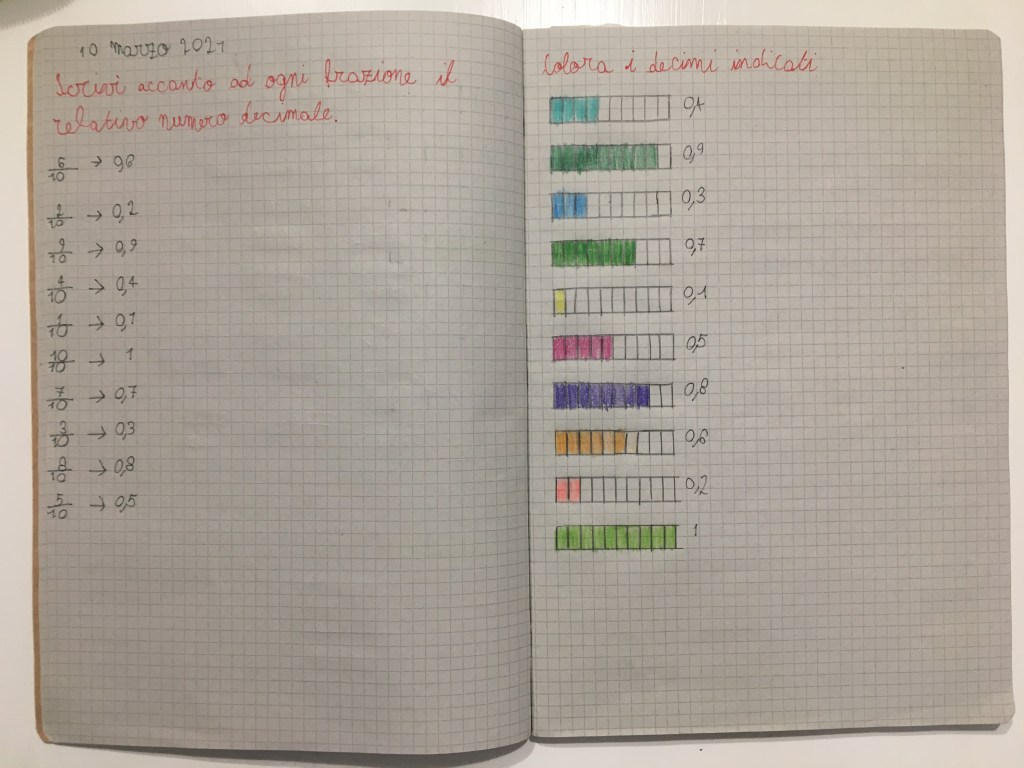 10 marzo 2021
Scrivi accanto ad ogni frazione il
relativo numero decimale.
6/10 → 0,6
2/10 → 0,2
9/10 → 0,9
4/10 → 0,4
1/10 → 0,1
10/10 → 1
7/10 → 0,7
3/10 → 0,3
8/10 → 0,8
5/10 → 0,5
Colora i decimi indicati
0,4
0,9
0,3
0,7
0,1
0,5
0,8
0,6
0,2
1